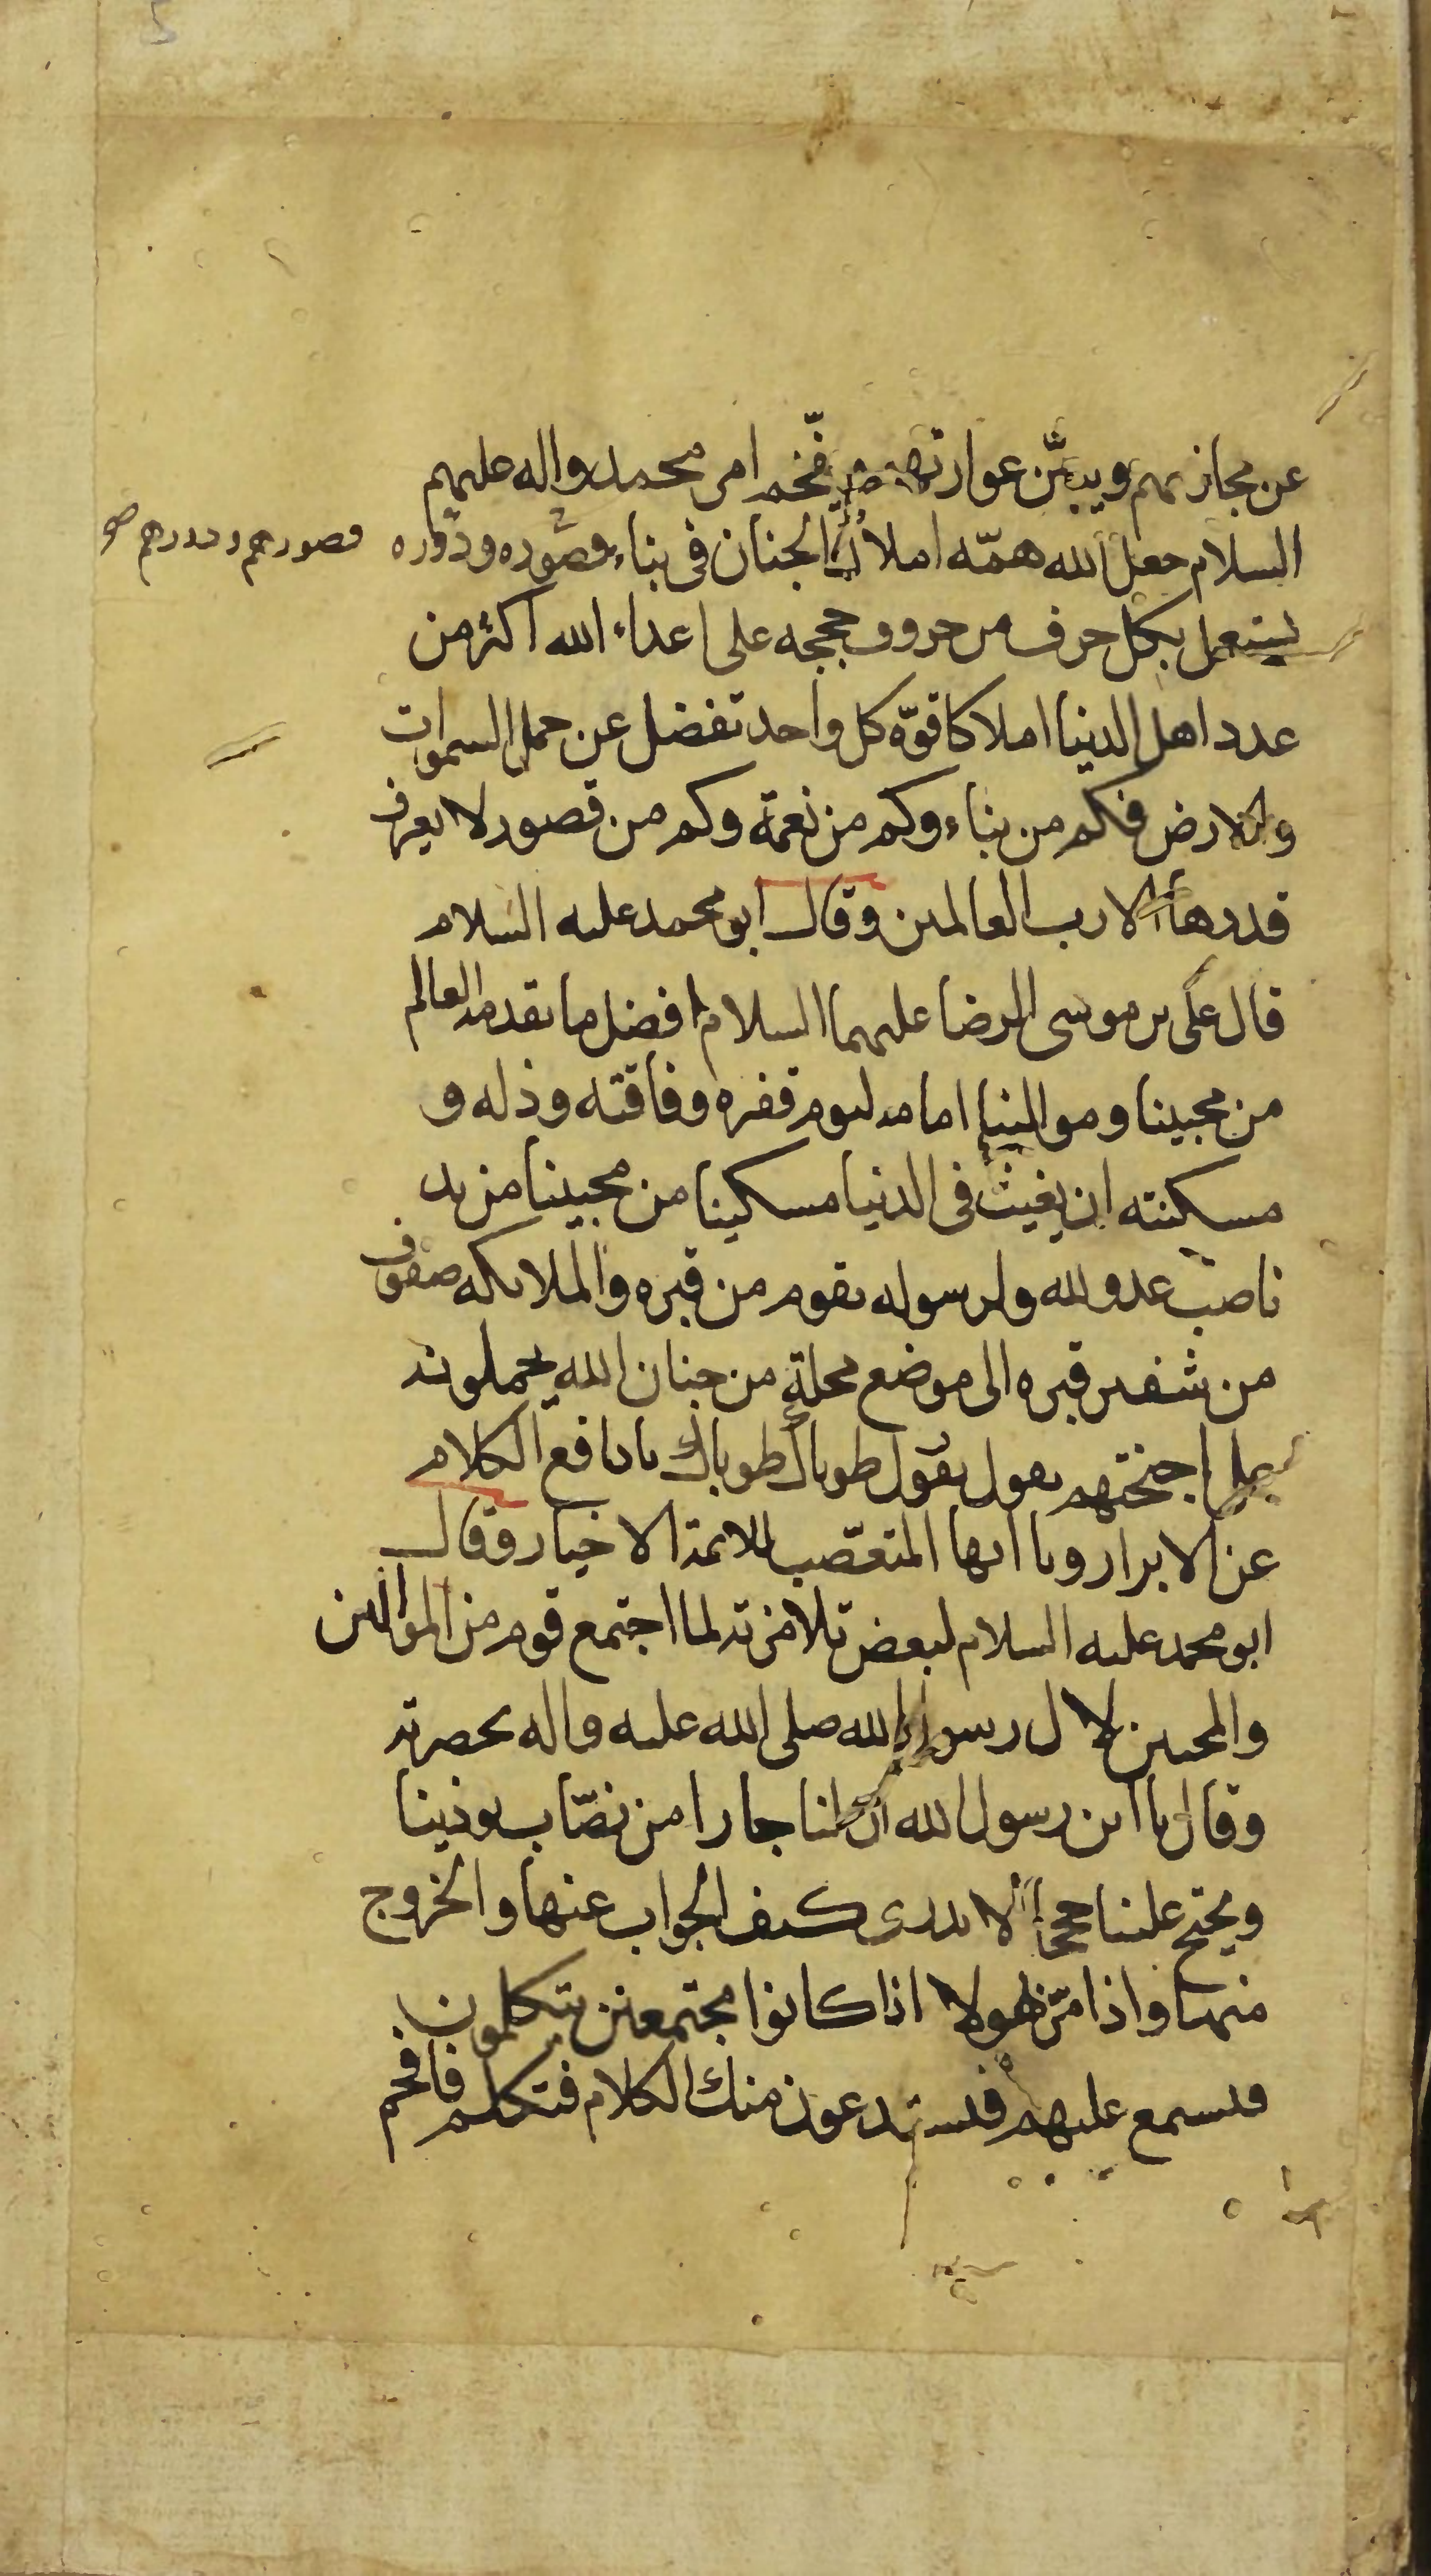 عن مجازيهم ويبيّن عوارتهم و يفّخم امر محمد واله عليهم
السلام جعل الله همّه املاك الجنان فى بناء قصوره ودوره
قصورهم ودورهم
يستعمل بكل حرف من حروف حججه على اعداء الله اكثر من
عدد اهل الدنيا املاكا قوّة كل واحد تفضل عن حمل السموات
والارض فكم من بناء وكم من نعمة وكم من قصور لا يعرف
قدرها الا رب العالمين وقال ابو محمد عليه السلام
قال على بن موسى الرضا عليهما السلام افضل ما يقدمه العالم
من محبينا وموالينا امامه ليوم فقره وفاقته وذله و
مسكنته ان يغيث فى الدنيا مسكينا من محبينا من يد
ناصب عدو لله ولرسوله يقوم من قبره والملائكة صفوف
من شفير قبره الى موضع محلة من جنان الله يحملونه
على اجنحتهم يقول يقول طوباك طوباك يا دافع الكلام
عن الابرار ويا ايها المتعصّب للائمة الاخيار وقال
ابو محمد عليه السلام لبعض تلامذته لما اجتمع قوم من الموالين
والمحبين لال رسول الله صلى الله عليه واله بحضرته
وقال يا ابن رسول الله ان لنا جارا من نصّاب يوذينا
ويحتج علينا حججا لا ندرى كيف الجواب عنها والخروج
منها واذا مرّ هولا اذا كانوا مجتمعين يتكلمون
فتسمع عليهم فيستدعون منك الكلام فتكلم فافحم